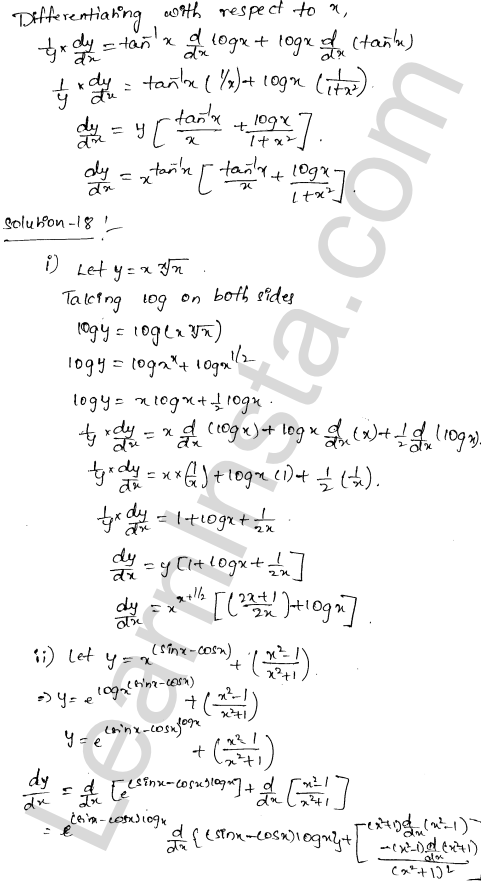 Differentiating with respect to x,
1/y × dy/dx = tan⁻¹x d/dx logx + logx d/dx (tan⁻¹x)
1/y × dy/dx = tan⁻¹x (1/x) + logx (1/(1+x²)).
dy/dx = y [tan⁻¹x/x + logx/(1+x²)].
dy/dx = x^(tan⁻¹x) [tan⁻¹x/x + logx/(1+x²)].
Solution-18 :-
i) Let y = x ˣ√x.
Talcing log on both sides
logy = log(x ˣ√x)
logy = logxˣ + logx^(1/2)
logy = x logx + 1/2 logx.
1/y × dy/dx = x d/dx (logx) + logx d/dx (x) + 1/2 d/dx (logx).
1/y × dy/dx = x × (1/x) + logx (1) + 1/2 (1/x).
1/y × dy/dx = 1 + logx + 1/2x
dy/dx = y [1 + logx + 1/2x]
dy/dx = x^(x+1/2) [(2x+1/2x) + logx].
ii) Let y = x^(sinx-cosx) + (x²-1/x²+1).
⇒ y = e^(logx^(sinx-cosx)) + (x²-1/x²+1)
y = e^((sinx-cosx)logx) + (x²-1/x²+1)
dy/dx = d/dx [e^((sinx-cosx)logx)] + d/dx [x²-1/x²+1]
= e^((sinx-cosx)logx) d/dx {(sinx-cosx)logx} + [(x²+1) d/dx (x²-1) - (x²-1) d/dx (x²+1) / (x²+1)²
LearnInsta.com